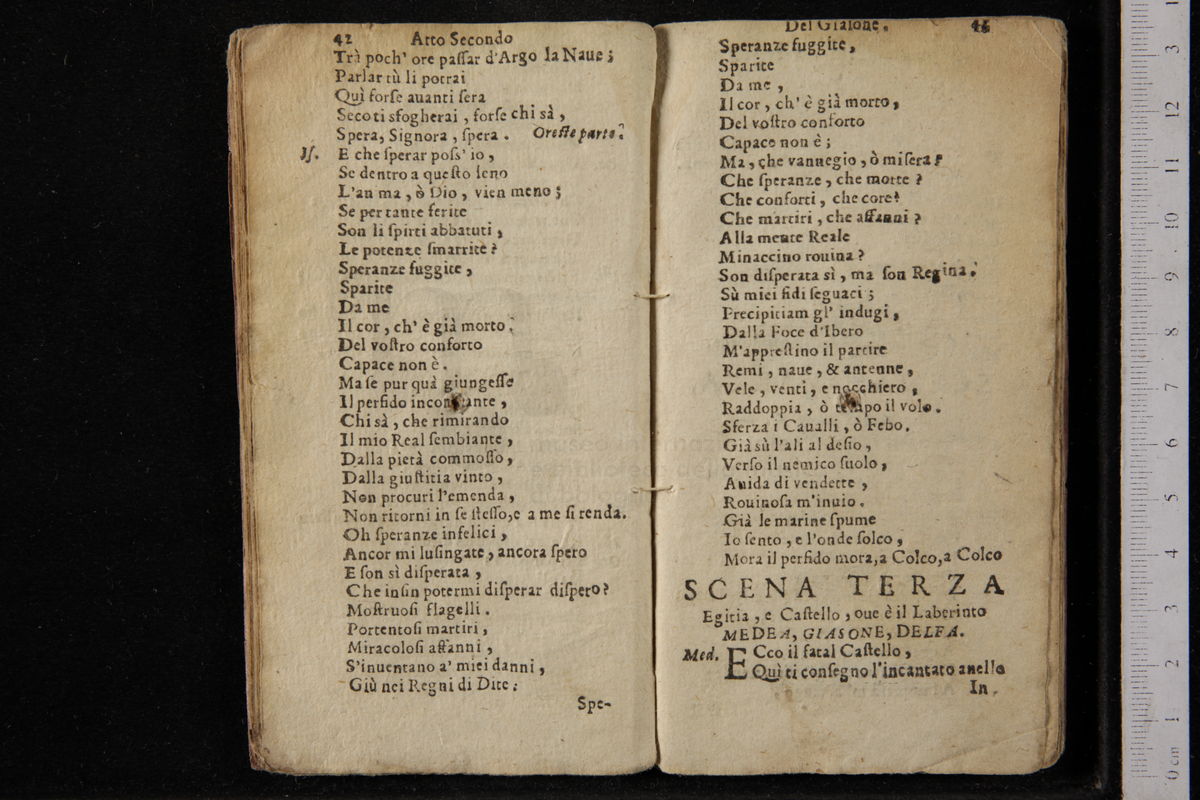 42 Atto Secondo
Trà poch' ore paſſar d'Argo la Naue;
Parlar tù li potrai
Quì forſe auanti ſera
Seco ti sfogherai, forſe chi sà,
Spera, Signora, ſpera. Oreſte parte.
Iſ. E che ſperar poſs' io,
Se dentro a queſto ſeno
L'an ma, ò Dio, vien meno;
Se per tante ferite
Son li ſpirti abbatuti,
Le potenze ſmarrite?
Speranze fuggite,
Sparite
Da me
Il cor, ch' è già morto.
Del voſtro conforto
Capace non è.
Ma ſe pur quà giungeſſe
Il perfido inconſtante,
Chi sà, che rimirando
Il mio Real ſembiante,
Dalla pietà commoſſo,
Dalla giuſtitia vinto,
Non procuri l'emenda,
Non ritorni in ſe ſteſſo,e a me ſi renda.
Oh ſperanze infelici,
Ancor mi luſingate, ancora ſpero
E ſon sì diſperata,
Che inſin potermi diſperar diſpero?
Moſtruoſi flagelli.
Portentoſi martiri,
Miracoloſi affanni,
S'inuentano a' miei danni,
Giù nei Regni di Dite:
Spe-
Del Giaſone. 43
Speranze fuggite,
Sparite
Da me,
Il cor, ch' è già morto,
Del voſtro conforto
Capace non è;
Ma, che vannegio, ò miſera?
Che ſperanze, che morte?
Che conforti, che core?
Che martiri, che affanni?
Alla mente Reale
Minaccino rouina?
Son diſperata sì, ma ſon Regina.
Sù miei fidi ſeguaci;
Precipitiam gl' indugi,
Dalla Foce d'Ibero
M'appreſtino il partire
Remi, naue, & antenne,
Vele, venti, e nocchiero,
Raddoppia, ò tempo il volo.
Sferza i Caualli, ò Febo.
Già sù l'ali al deſio,
Verſo il nemico ſuolo,
Auida di vendette,
Rouinoſa m'inuio.
Già le marine ſpume
Io ſento, e l'onde ſolco,
Mora il perfido mora,a Colco,a Colco
SCENA TERZA
Egitia, e Caſtello, oue è il Laberinto
MEDEA, GIASONE, DELFA.
Med. ECco il fatal Caſtello,
Quì ti conſegno l'incantato anello
In.